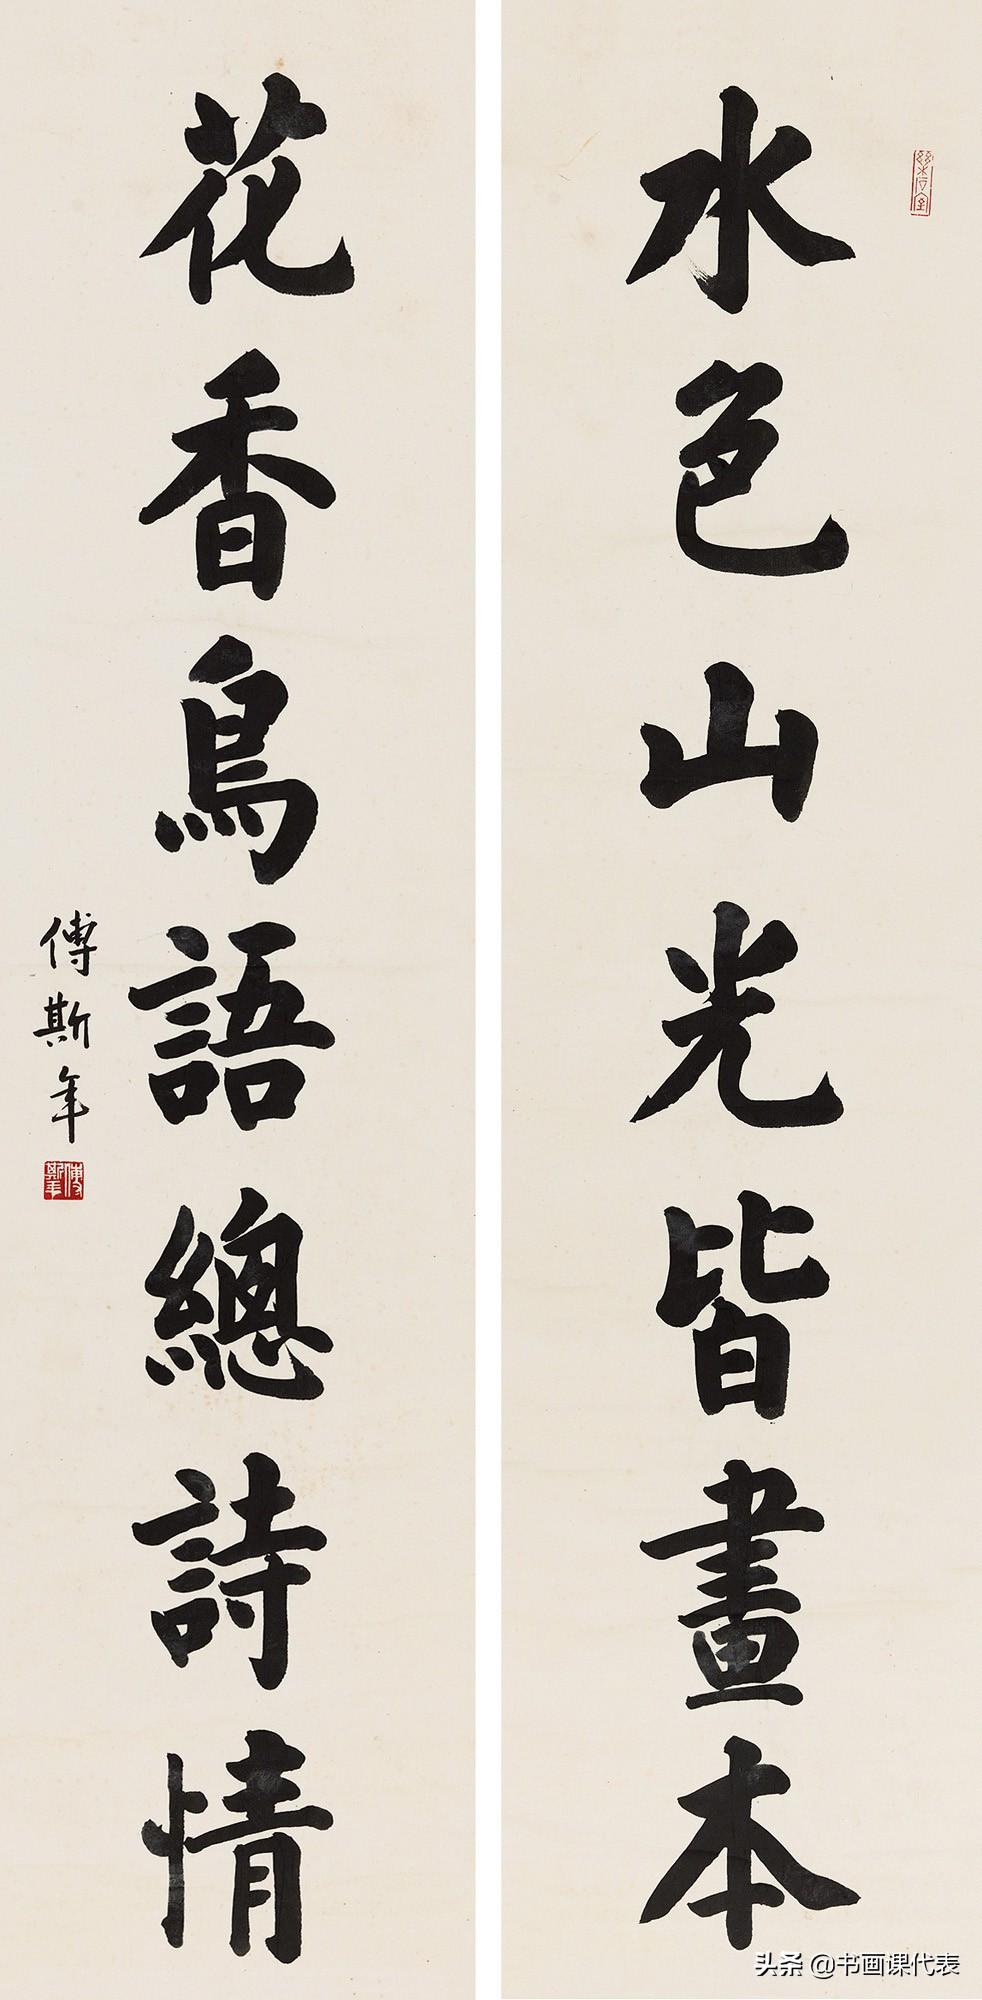 水色山光皆畫本
花香鳥語總詩情
傅斯年
傅斯年
头条 @书画课代表